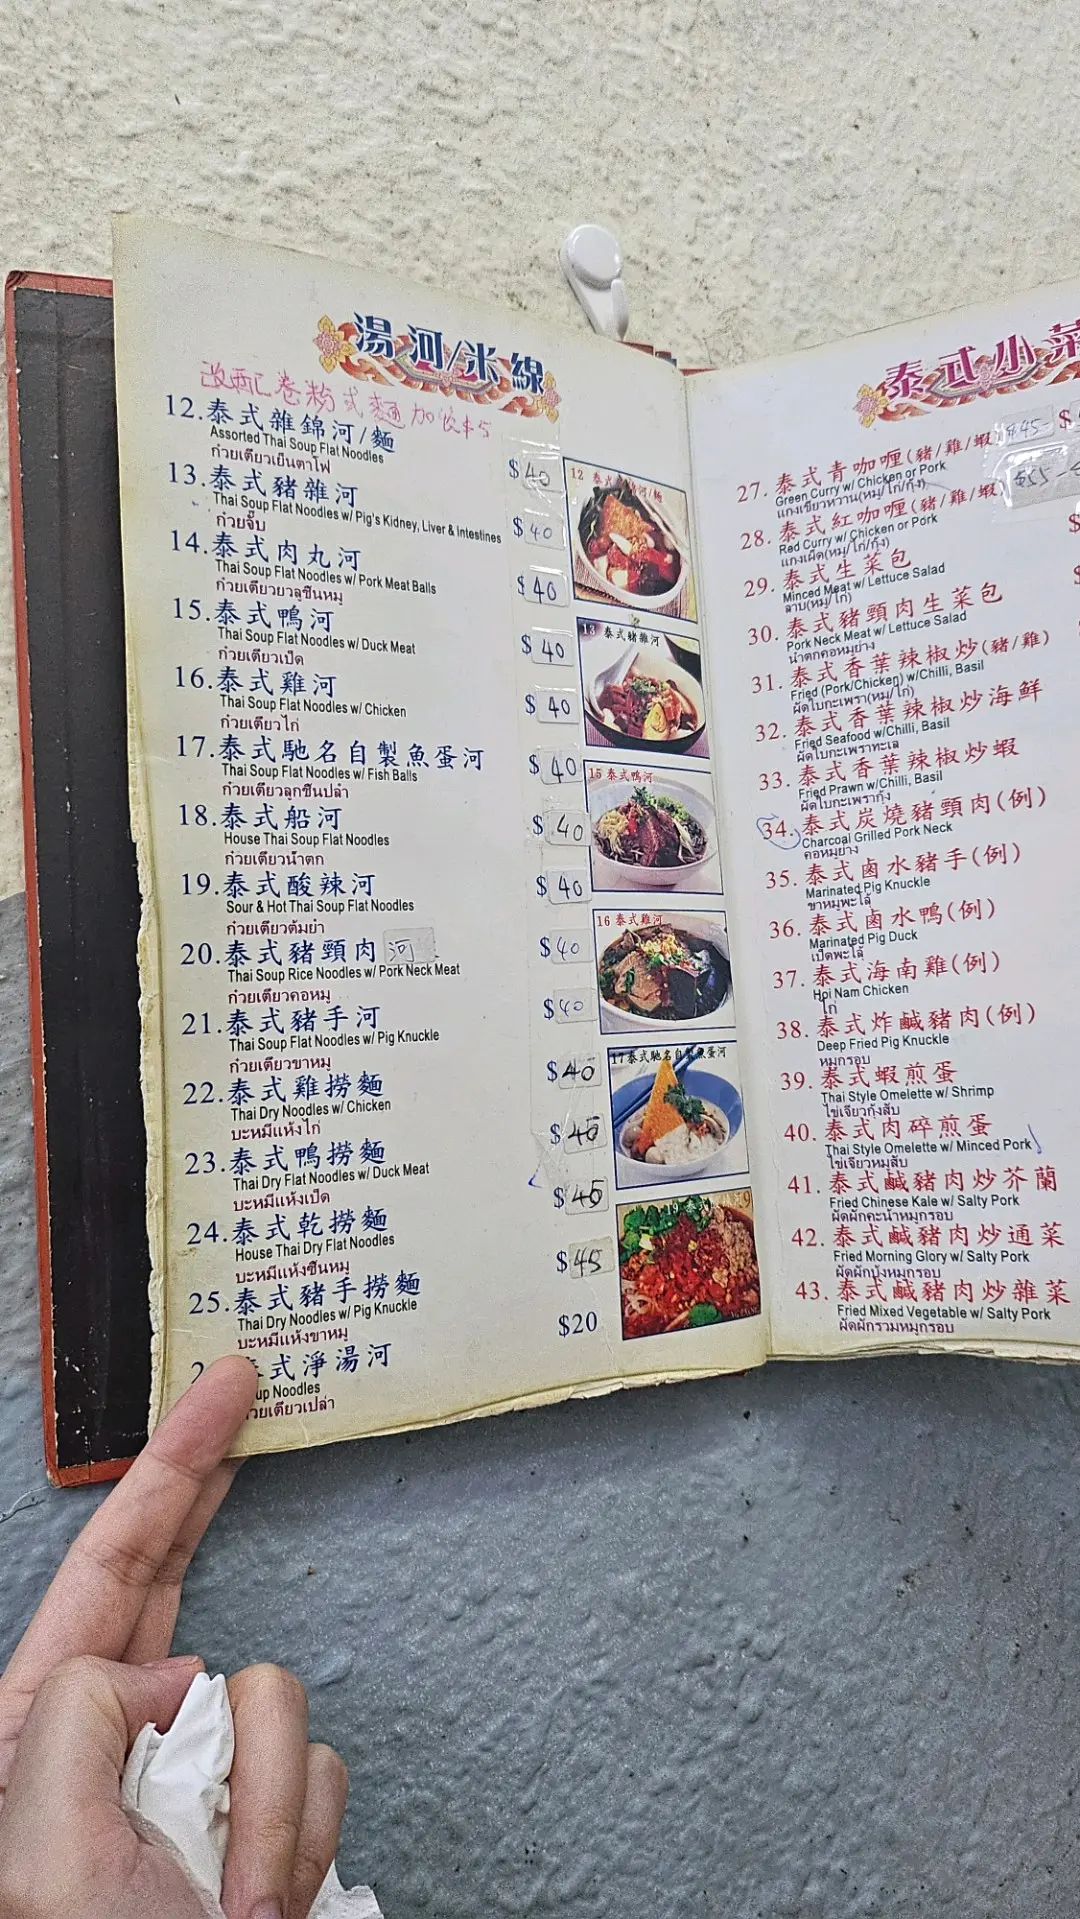 湯河/米線
12.泰式雜錦河/麵
Assorted Thai Soup Flat Noodles
ก๋วยเตี๋ยวเย็นตาโฟ
$40
13.泰式豬雜河
Thai Soup Flat Noodles w/ Pig's Kidney, Liver & Intestines
ก๋วยจั๊บ
$40
14.泰式肉丸河
Thai Soup Flat Noodles w/ Pork Meat Balls
$40
15.泰式鴨河
Thai Soup Flat Noodles w/ Duck Meat
ก๋วยเตี๋ยวเป็ด
$40
16.泰式雞河
Thai Soup Flat Noodles w/ Chicken
ก๋วยเตี๋ยวไก่
$40
17.泰式馳名自製魚蛋河
Thai Soup Flat Noodles w/ Fish Balls
ก๋วยเตี๋ยวลูกชิ้นปลา
$40
18.泰式船河
House Thai Soup Flat Noodles
ก๋วยเตี๋ยวน้ำตก
$40
19.泰式酸辣河
Sour & Hot Thai Soup Flat Noodles
ก๋วยเตี๋ยวต้มยำ
$40
20.泰式豬頸肉河
Thai Soup Rice Noodles w/ Pork Neck Meat
ก๋วยเตี๋ยวคอหมู
$40
21.泰式豬手河
Thai Soup Flat Noodles w/ Pig Knuckle
ก๋วยเตี๋ยวขาหมู
$40
22.泰式雞撈麵
Thai Dry Noodles w/ Chicken
บะหมี่แห้งไก่
$40
23.泰式鴨撈麵
Thai Dry Flat Noodles w/ Duck Meat
บะหมี่แห้งเป็ด
24.泰式乾撈麵
House Thai Dry Flat Noodles
บะหมี่แห้งชิ้นหมู
25.泰式豬手撈麵
Thai Dry Noodles w/ Pig Knuckle
บะหมี่แห้งขาหมู
$45
式淨湯河
up Noodles
$20
12 泰式
13 泰式豬雜河
15 泰式鴨河
16 泰式雞河
17泰式馳名自製魚蛋河
泰式小菜
27. 泰式青咖喱(豬/雞/蝦
Green Curry w/ Chicken or Pork
แกงเขียวหวาน(หมู/ไก่/กุ้ง)
28. 泰式紅咖喱(豬/雞/蝦
Red Curry w/ Chicken or Pork
แกงเผ็ด(หมู/ไก่/กุ้ง)
29. 泰式生菜包
Minced Meat w/ Lettuce Salad
ลาบ(หมู/ไก่)
30. 泰式豬頸肉生菜包
Pork Neck Meat w/ Lettuce Salad
น้ำตกคอหมูย่าง
31. 泰式香葉辣椒炒(豬/雞)
Fried (Pork/Chicken) w/Chilli, Basil
ผัดใบกะเพรา(หมู/ไก่)
32. 泰式香葉辣椒炒海鮮
Fried Seafood w/Chilli, Basil
ผัดใบกะเพราทะเล
33. 泰式香葉辣椒炒蝦
Fried Prawn w/Chilli, Basil
ผัดใบกะเพรากุ้ง
34. 泰式炭燒豬頸肉(例)
Charcoal Grilled Pork Neck
คอหมูย่าง
35. 泰式鹵水豬手(例)
Marinated Pig Knuckle
ขาหมูพะโล้
36. 泰式鹵水鴨(例)
Marinated Pig Duck
เป็ดพะโล้
37. 泰式海南雞(例)
Hoi Nam Chicken
ไก่
38. 泰式炸鹹豬肉(例)
Deep Fried Pig Knuckle
หมูกรอบ
39. 泰式蝦煎蛋
Thai Style Omelette w/ Shrimp
ไข่เจียวกุ้งสับ
40. 泰式肉碎煎蛋
Thai Style Omelette w/ Minced Pork
ไข่เจียวหมูสับ
41. 泰式鹹豬肉炒芥蘭
Fried Chinese Kale w/ Salty Pork
ผัดผักคะน้าหมูกรอบ
42. 泰式鹹豬肉炒通菜
Fried Morning Glory w/ Salty Pork
ผัดผักบุ้งหมูกรอบ
43. 泰式鹹豬肉炒雜菜
Fried Mixed Vegetable w/ Salty Pork
ผัดผักรวมหมูกรอบ